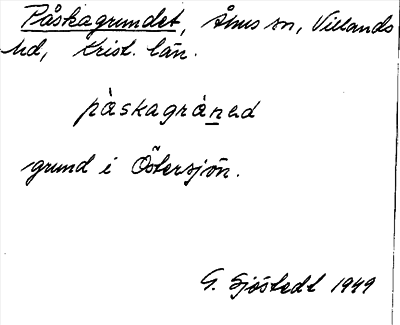 Påskagrundet, Åhus sn, Villands
hd, Krist. län.
påskagrån̲ed
grund i Östersjön.
G. Sjöstedt 1949